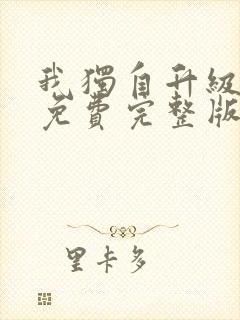 我獨自升級
免費完整版
里卡多